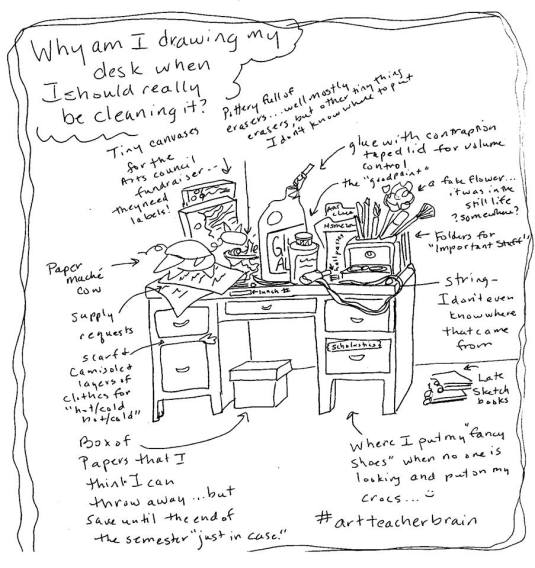 Why am I drawing my
desk when
I should really
be cleaning it?
Pottery full of
erasers...well mostly
erasers, but other tiny things
I don't know where to put
Tiny canvases
for the
Arts council
fundraiser--
they need
labels!
glue with contraption
taped lid for volume
control
the "good paint"
a fake flower...
it was in the
still life
?somewhere?
Folders for
"Important Stuff"
Paper
maché
cow
supply
requests
scarf &
Camisole &
layers of
clothes for
"hot/cold
hot/cold"
string-
I don't even
know where
that came
from
lunch
Scholastics
Late
Sketch
books
Box of
Papers that I
think I can
throw away...but
save until the end of
the semester "just in case."
Where I put my "fancy
shoes" when no one is
looking and put on my
crocs... :)
#artteacherbrain